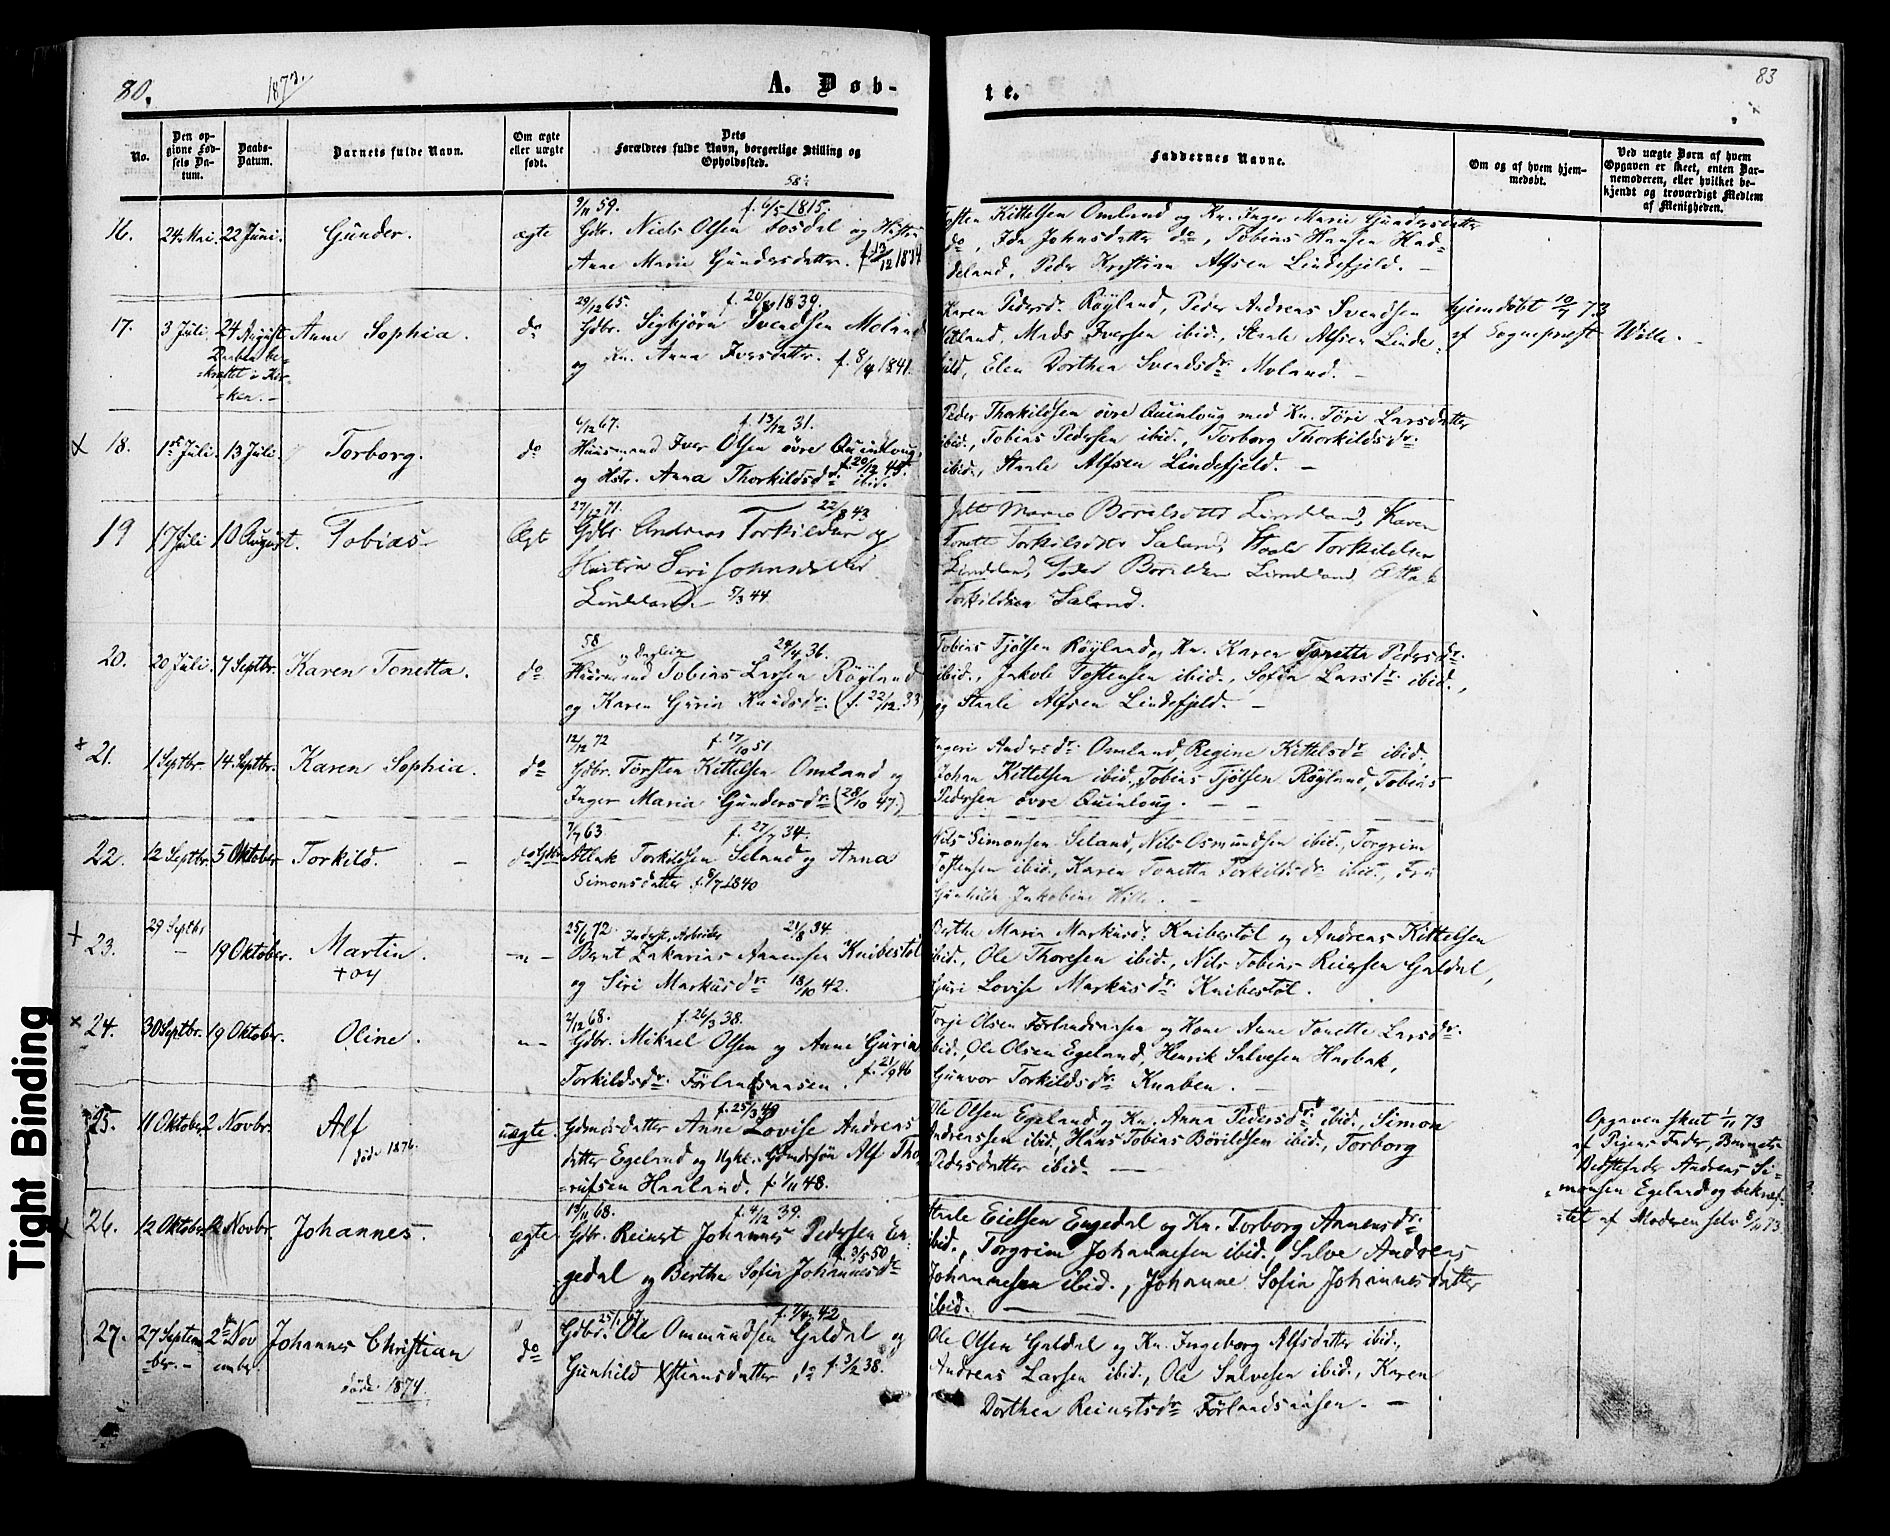 80.
1873.
A. Døb-
te.
83
No.
Den op-
givne Fød-
sels Da-
tum.
Daabs-
Datum.
Barnets fulde Navn.
Om ægte
eller uægte
født.
Dets
Forældres fulde Navn, borgerlige Stilling og
Opholdssted.
Faddernes Navne.
Om og af hvem hjem-
medøbt.
Ved uægte Børn af hvem
Opgaven er skeet, enten Bar-
nemoderen, eller hvilket be-
kjendt og troværdigt Medlem
af Menigheden.
16. 24 Mai. 22 Juni. Gunder. ægte
9/11 59. f. 6/5 1815.
Gdbr. Niels Olsen Fosdal og Hustru
Anne Marie Gundersdatter. f. 13/12 1834
Tosten Kittelsen Omland og Kn. Inger Marie Gundersdatter
do, Ida Johnsdatter do, Tobias Hansen Had-
deland, Peder Kristian Alfsen Lindefjeld. –
17. 3 Juli. 24 August. Anne Sophia. do
Daaben be-
kræftet i Kir-
ken. –
29/12 65. f. 20/8 1839.
Gdbr. Sigbjørn Svendsen Moland
og Kn. Anna Iversdatter. f. 8/4 1841.
Karen Pedersdr. Røyland, Peder Andreas Svendsen
Mads Iversen ibid., Staale Alfsen Linde-
fjeld, Elen Dorthea Svendsdr. Moland. –
Hjemdøbt 10/7 73
af Sognepræst Wille.
x 18. 1ste Juli. 13 Juli. Torborg. do
6/12 67. f. 13/12 31.
Huusmand Iver Olsen øvre Quindloug,
og Hstr. Anna Thorkildsdr. ibid. f. 20/12 45.
Peder Thorkildsen øvre Quinloug med Kn. Tøri Larsdatter
ibid., Tobias Pedersen ibid., Torborg Thorkildsdr.
ibid., Staale Alfsen Lindefjeld. –
19 17 Juli 10 August. Tobias Ægt
27/12 71. 22/8 43
Gdbr. Andreas Torkildsen og
Hustru Siri Johannesdatter
Lindland. 5/3 44.
Marie Lindland, Karen
Tonette Torkildsdtr Sæland, Staale Torkildsen
Lindland, Peder Lindland, Atlak
Torkildsen Sæland.
20. 20 Juli. 7 Septbr. Karen Tonetta. do
58/ 24/4 36.
Huusmand og Tobias Larsen Røyland
og Karen Gurin Knudsdr. (f. 22/12 33)
Tobias Tjølsen Røyland og Kn. Karen Tonette Pedersdr.
ibid., Jakob Tostensen ibid., Sofia Larsdr. ibid.,
og Staale Alfsen Lindefjeld. –
x 21. 1 Septbr. 14 Septbr. Karen Sophia. do
12/12 72 f. 17/10 51.
Gdbr. Torsten Kittelsen Omland og
Inger Maria Gundersdr. (28/10 47.)
Ingeri Andersdr. Omland, Regine Kittelsdr. ibid.,
Johan Kittelsen ibid., Tobias Tjølsen Røyland, Tobias
Pedersen øvre Quinloug. –
22. 12 Septbr. 5 Oktober Torkild. – do Gdbr.
7/7 63. f. 27/7 34.
Atlak Torkildsen Seland og Anna
Simonsdatter f. 8/7 1840
Nils Simonsen Seland, Nils Osmundsen ibid., Torgrim
Tostensen ibid., Karen Tonetta Torkildsdr. ibid., Fru
Gunhilda Jakobine Wille. –
+ 23. 29 Septbr 19 Oktober. Martin. –"–
25/6 72. Inderst, Arbeider 21/8 34.
Bernt Zakarias Annensen Knibestøl
og Siri Markusdr. 18/10 42.
Berthe Maria Markusdr. Knibestøl og Andreas Kittelsen
ibid., Ole Thoresen ibid., Nils Tobias Reiersen Galdal,
Guri Lovise Markusdr. Knibestøl.
x 24. 30 Septbr. 19 Oktober. Oline. "–
2/12 68. f. 26/3 38.
Gdbr. Mikael Olsen og Anne Gurin
Torkildsdr. Førlandsaasen. f. 21/9 46
Torje Olsen Førlandsaasen og Kone Anne Tonette Larsdr.
ibid., Ole Olsen Egeland, Henrik Salvesen Harbak,
Gunvor Torkildsdr. Knaben. –
25. 11 Oktober 2 Novbr. Alf uægte.
død 1876.
f. 25/3 49
Gdmdsdatter Anne Lovise Andreas-
datter Egeland og Ugk. Gdmdssøn Alf Tho-
Haaland. f. 1/11 48.
Ole Olsen Egeland og Kn. Anna Pedersdr. ibid., Simon
Andreassen ibid., Hans Tobias Børildsen ibid., Torborg
Pedersdatter ibid. –
Opgaven skeet 1/11 73
af Pigens Fader, Barnets
Bedstefader Andreas Si-
monsen Egeland og bekræf-
tet af Moderen selv 8/11 73
x 26. 12 Oktober 2 Novbr. Johannes. ægte
13/11 68. f. 4/12 39.
Gdbr. Reinert Johannes Pedersen En-
gedal og Berthe Sofia Johannesdr. f. 3/5 50
Staale Eielsen Engedal og Kn. Torborg Annensdr.
ibid., Torgrim Johannesen ibid., Salve Andreas
Johannesen ibid., Johanne Sofia Johannesdatter
ibid. –
27. 27 Septem-
ber. – 2den Nov
ember. Johannes Christian do
død. 1874.
25/1 67. f. 7/4 42
Gdbr. Ole Ommundsen Galdal og
Gunhild Xstiansdatter do f. 3/2 38.
Ole Olsen Galdal og Kn. Ingeborg Alfsdatter ibid.,
Andreas Larsen ibid., Ole Salvesen ibid., Karen
Dorthea Reinertsdr. Førlandsaasen. –
Tight Binding